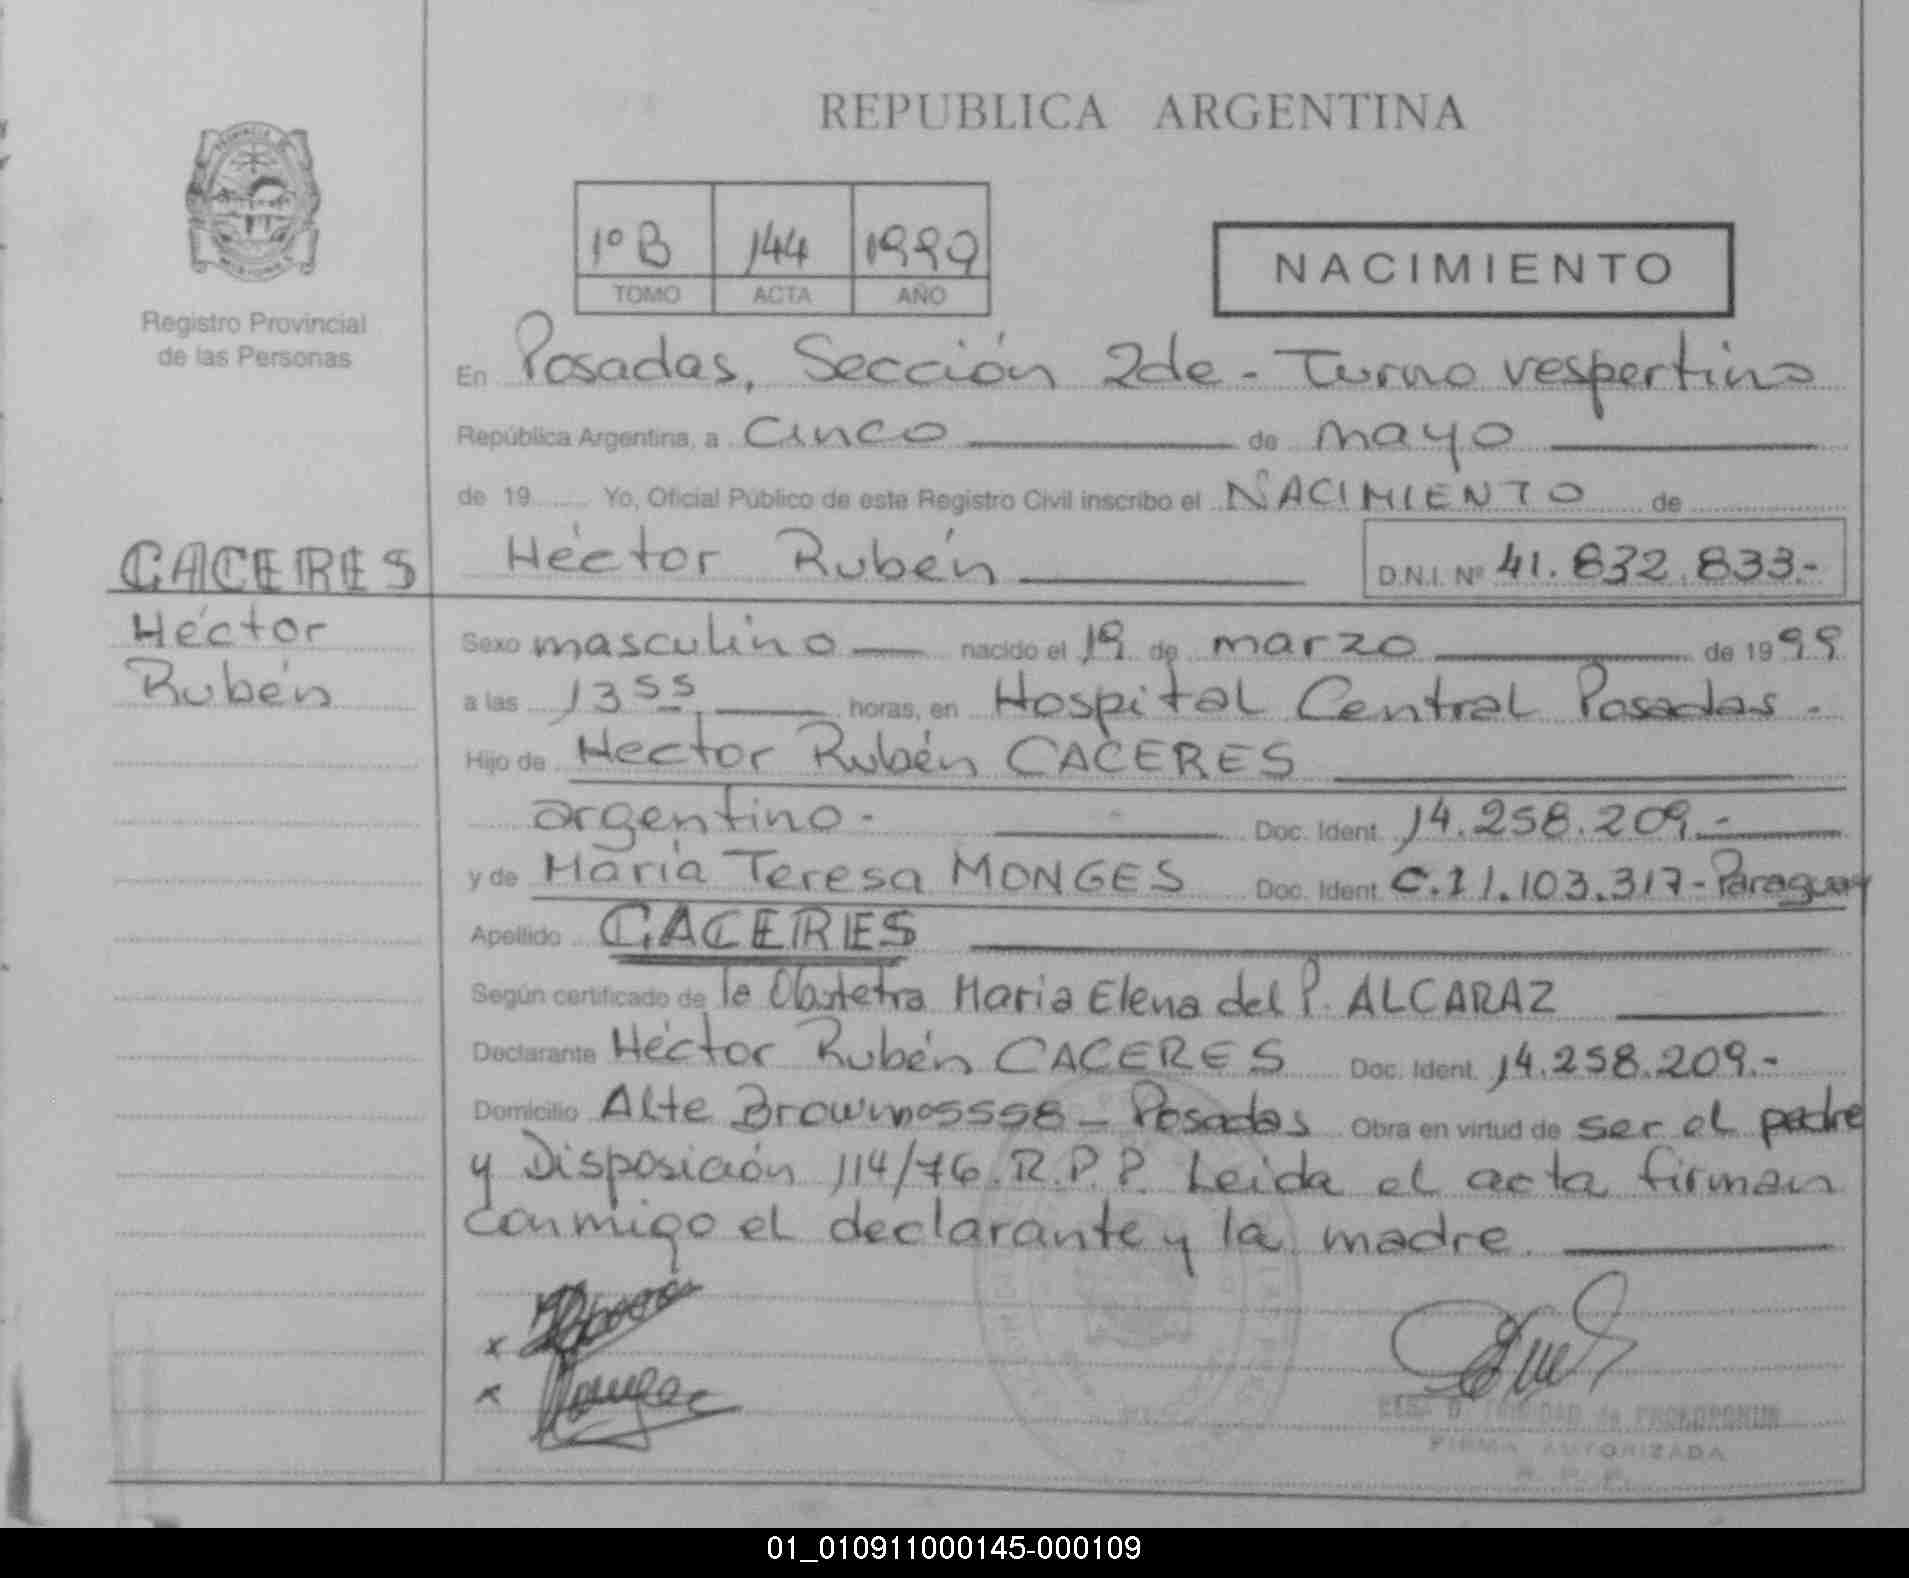 REPUBLICA ARGENTINA
Registro Provincial
de las Personas
1º B 144 1999
TOMO ACTA AÑO
NACIMIENTO
En Posadas, Sección 2da - Turno vespertino
República Argentina, a Cinco de mayo
de 19 Yo, Oficial Público de este Registro Civil inscribo el NACIMIENTO de
CACERES Héctor Rubén D.N.I. Nº 41.832.833.-
Héctor
Rubén
Sexo masculino nacido el 19 de marzo de 1999
a las 13 55 horas, en Hospital Central Posadas.
Hijo de Hector Rubén CACERES
argentino.- Doc. Ident. 14.258.209.-
y de María Teresa MONGES Doc. Ident. C.I 1.103.317- Paraguay
Apellido CACERES
Según certificado de la Obstetra Maria Elena del P. ALCARAZ
Declarante Héctor Rubén CACERES Doc. Ident. 14.258.209.-
Domicilio Alte Brown 5558 - Posadas Obra en virtud de ser el padre
y Disposición 114/76. R.P.P. Leida el acta firman
conmigo el declarante y la madre.
x
x
TRINIDAD de PROKOPCHUK
FIRMA AUTORIZADA
R. P. P.
01_010911000145-000109